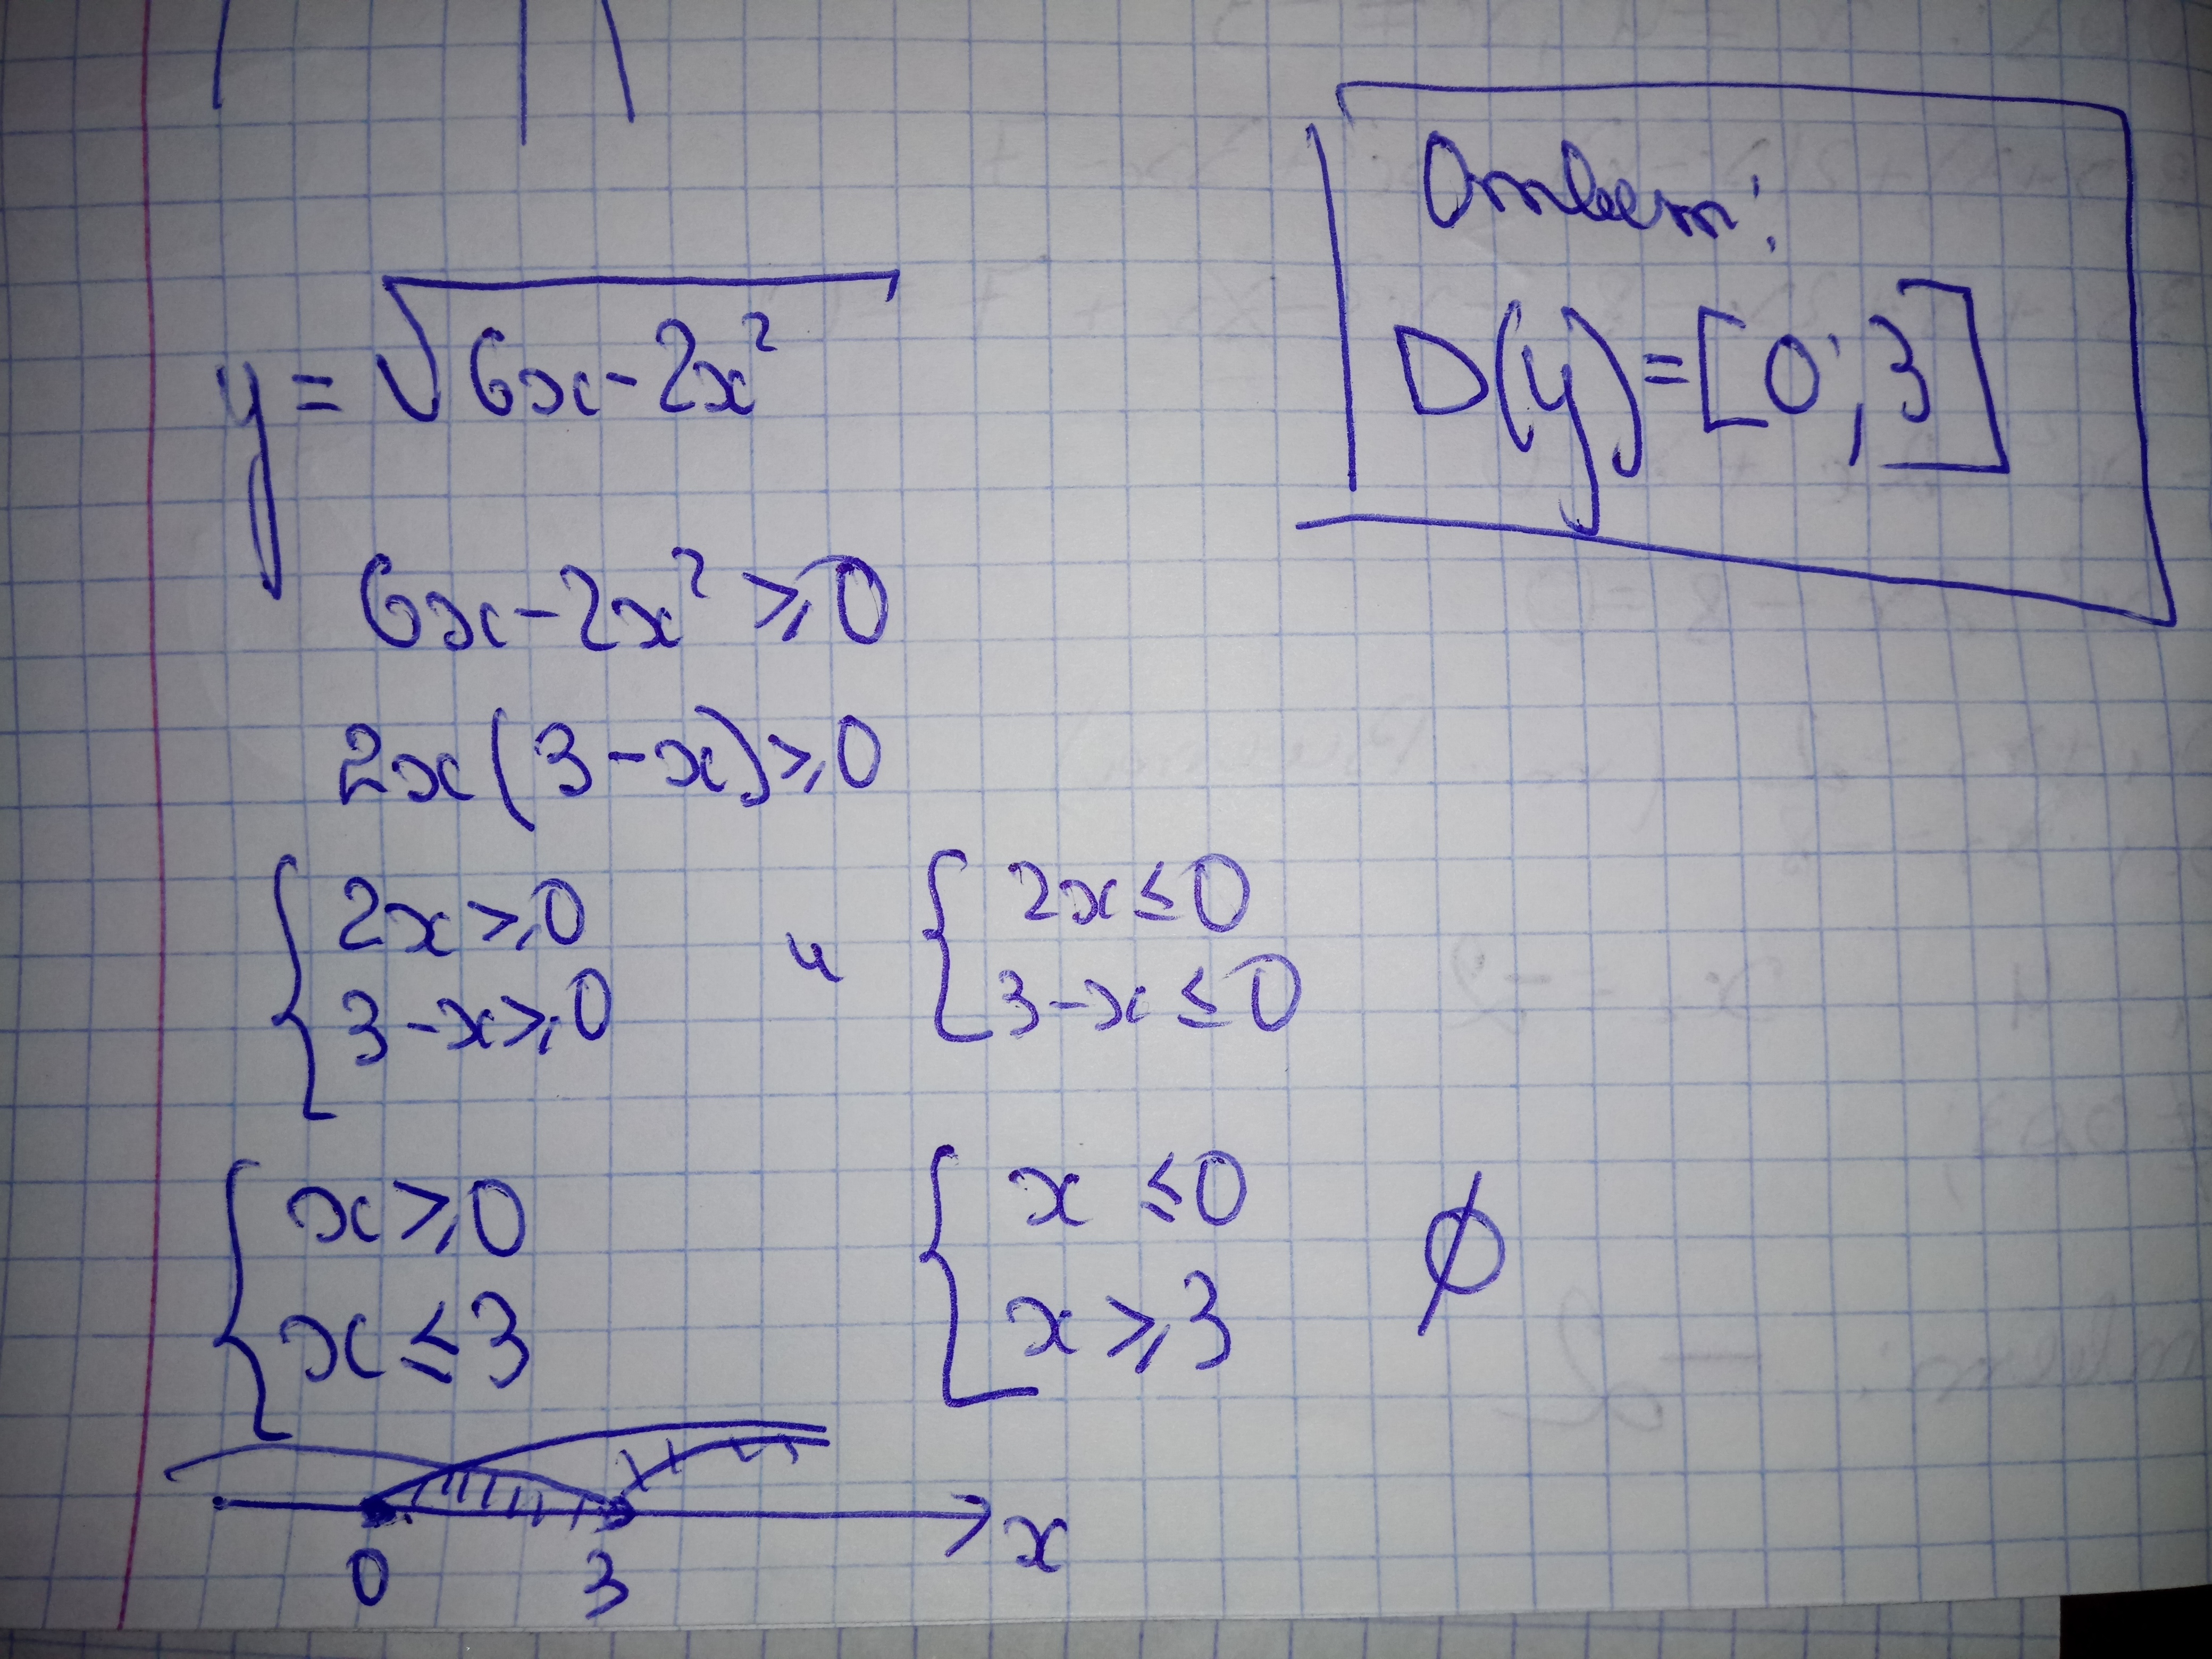 y = √6x-2x²
6x-2x² ⩾ 0
2x(3-x) ⩾ 0
{ 2x ⩾ 0 и { 2x ≤ 0
3-x ⩾ 0 3-x ≤ 0
{ x ⩾ 0 { x ≤ 0 ∅
x ≤ 3 x ⩾ 3
0 3 x
Ответ:
D(y)=[0;3]